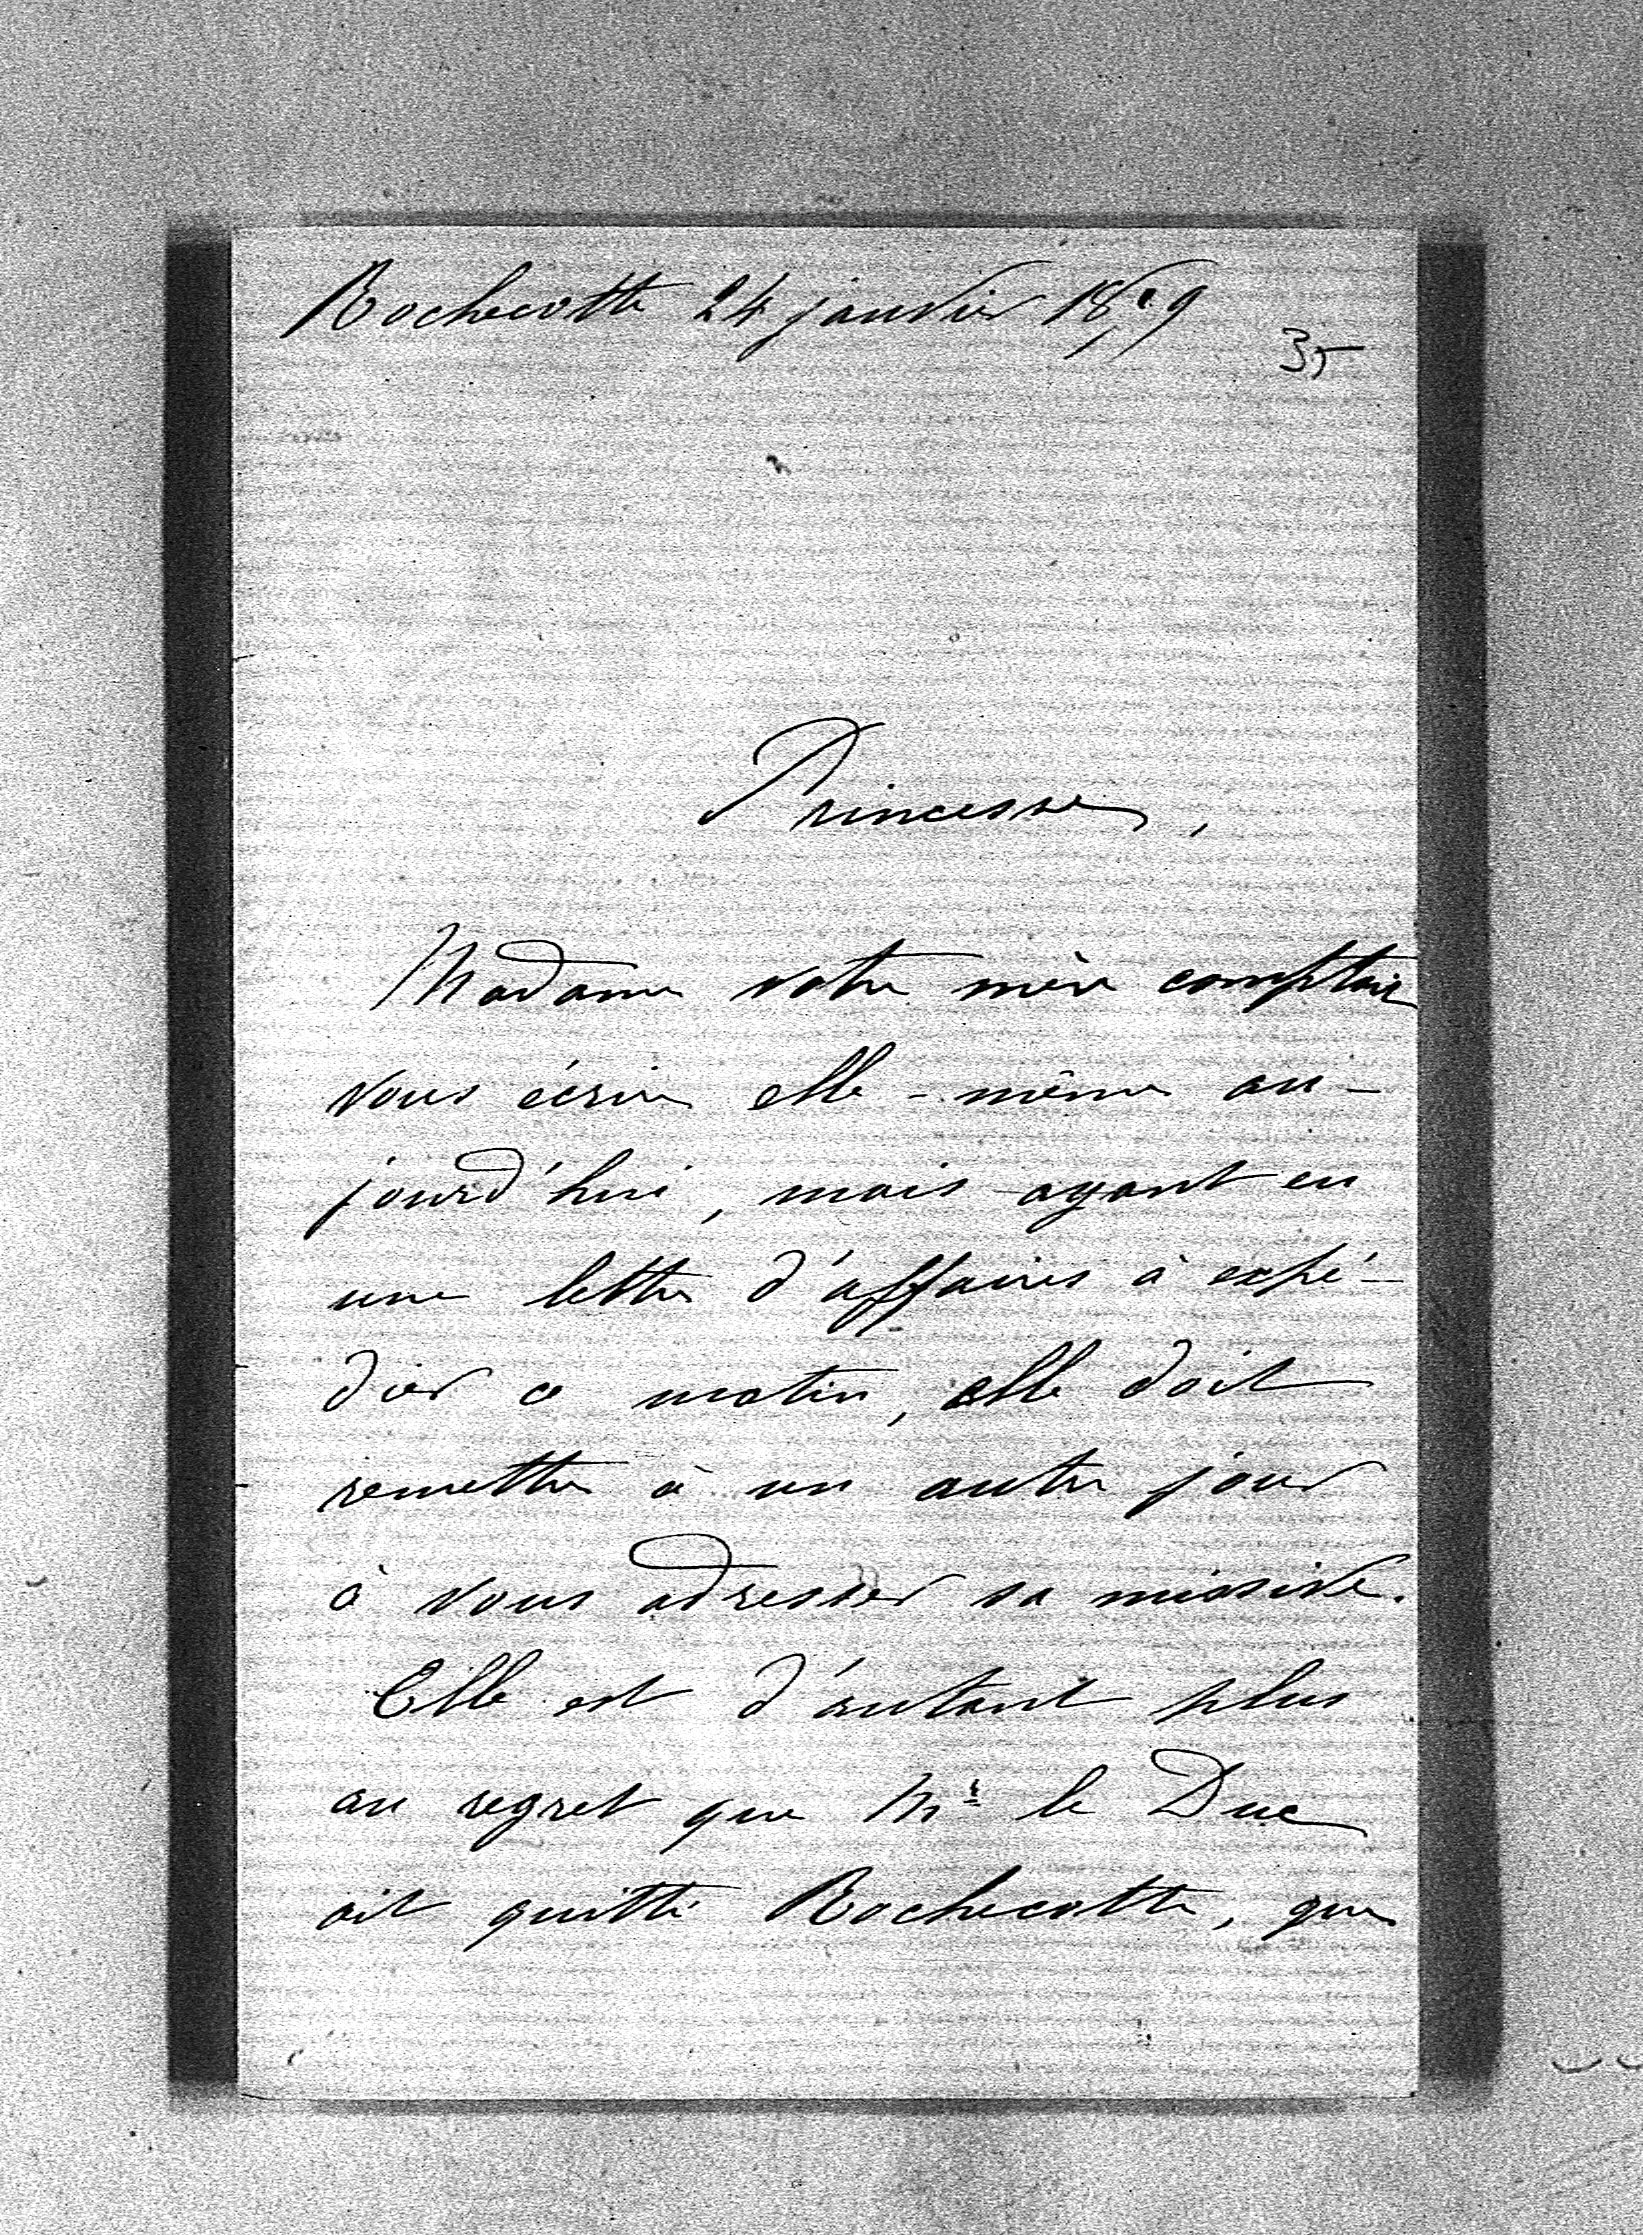 Rochecotte 24 janvier
35
Princesse,
Madame votre mère comptait
vous écrire elle-même au-
jourd'hui, mais ayant eu
une lettre d'affaires à expé-
dier ce matin, elle doit
remettre à un autre jour
à vous adresser sa missive.
Elle est d'autant plus
au regret que Mr le Duc
ait quitté Rochecotte, que